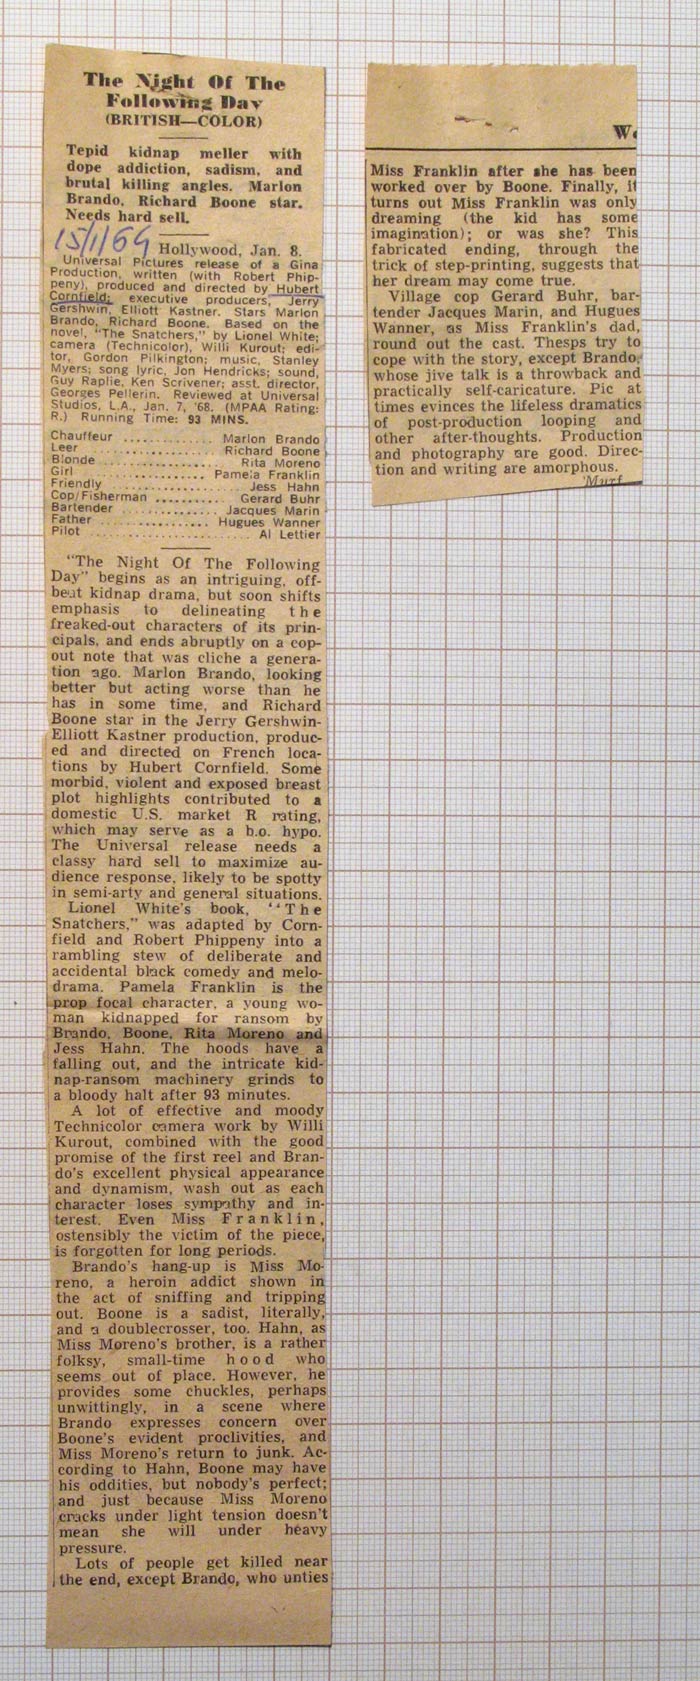 The Night Of The
Following Day
(BRITISH—COLOR)
Tepid kidnap meller with
dope addiction, sadism, and
brutal killing angles. Marlon
Brando, Richard Boone star.
Needs hard sell.
15/1/69
Hollywood, Jan. 8.
Universal Pictures release of a Gina
Production, written (with Robert Phip-
peny), produced and directed by Hubert
Cornfield; executive producers, Jerry
Gershwin, Elliott Kastner. Stars Marlon
Brando, Richard Boone. Based on the
novel, "The Snatchers," by Lionel White;
camera (Technicolor), Willi Kurout; edi-
tor, Gordon Pilkington; music, Stanley
Myers; song lyric, Jon Hendricks; sound,
Guy Raplie, Ken Scrivener; asst. director,
Georges Pellerin. Reviewed at Universal
Studios, L.A., Jan. 7, '68. (MPAA Rating:
R.) Running Time: 93 MINS.
Chauffeur ............ Marlon Brando
Leer .................. Richard Boone
Blonde .................. Rita Moreno
Girl ................ Pamela Franklin
Friendly .................. Jess Hahn
Cop/Fisherman ........... Gerard Buhr
Bartender ............. Jacques Marin
Father ............... Hugues Wanner
Pilot ..................... Al Lettier
"The Night Of The Following
Day" begins as an intriguing, off-
beat kidnap drama, but soon shifts
emphasis to delineating the
freaked-out characters of its prin-
cipals, and ends abruptly on a cop-
out note that was cliche a genera-
tion ago. Marlon Brando, looking
better but acting worse than he
has in some time, and Richard
Boone star in the Jerry Gershwin-
Elliott Kastner production, produc-
ed and directed on French loca-
tions by Hubert Cornfield. Some
morbid, violent and exposed breast
plot highlights contributed to a
domestic U.S. market R rating,
which may serve as a b.o. hypo.
The Universal release needs a
classy hard sell to maximize au-
dience response, likely to be spotty
in semi-arty and general situations.
Lionel White's book, "The
Snatchers," was adapted by Corn-
field and Robert Phippeny into a
rambling stew of deliberate and
accidental black comedy and melo-
drama. Pamela Franklin is the
prop focal character, a young wo-
man kidnapped for ransom by
Brando, Boone, Rita Moreno and
Jess Hahn. The hoods have a
falling out, and the intricate kid-
nap-ransom machinery grinds to
a bloody halt after 93 minutes.
A lot of effective and moody
Technicolor camera work by Willi
Kurout, combined with the good
promise of the first reel and Bran-
do's excellent physical appearance
and dynamism, wash out as each
character loses sympathy and in-
terest. Even Miss Franklin,
ostensibly the victim of the piece,
is forgotten for long periods.
Brando's hang-up is Miss Mo-
reno, a heroin addict shown in
the act of sniffing and tripping
out. Boone is a sadist, literally,
and a doublecrosser, too. Hahn, as
Miss Moreno's brother, is a rather
folksy, small-time hood who
seems out of place. However, he
provides some chuckles, perhaps
unwittingly, in a scene where
Brando expresses concern over
Boone's evident proclivities, and
Miss Moreno's return to junk. Ac-
cording to Hahn, Boone may have
his oddities, but nobody's perfect;
and just because Miss Moreno
cracks under light tension doesn't
mean she will under heavy
pressure.
Lots of people get killed near
the end, except Brando, who unties
Miss Franklin after she has been
worked over by Boone. Finally, it
turns out Miss Franklin was only
dreaming (the kid has some
imagination); or was she? This
fabricated ending, through the
trick of step-printing, suggests that
her dream may come true.
Village cop Gerard Buhr, bar-
tender Jacques Marin, and Hugues
Wanner, as Miss Franklin's dad,
round out the cast. Thesps try to
cope with the story, except Brando,
whose jive talk is a throwback and
practically self-caricature. Pic at
times evinces the lifeless dramatics
of post-production looping and
other after-thoughts. Production
and photography are good. Direc-
tion and writing are amorphous.
Murf.